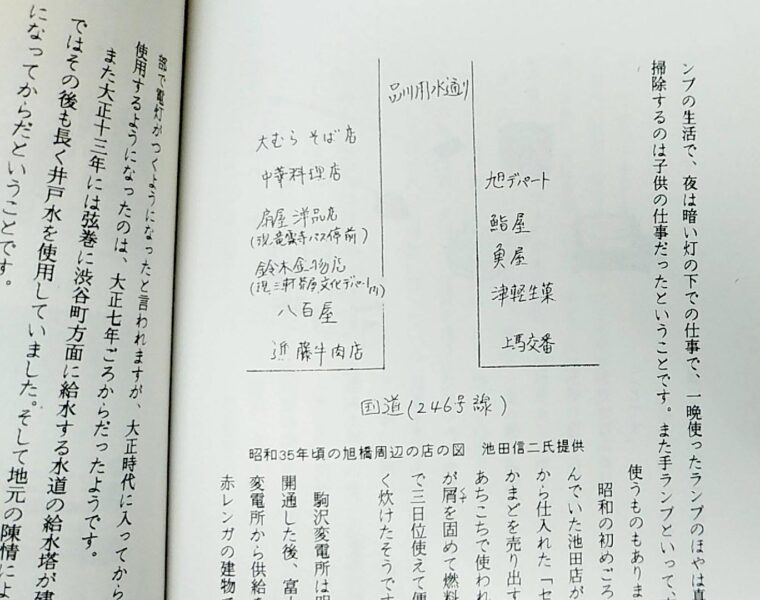 ンプの生活で、夜は暗い灯の下での仕事で、一晩使ったランプのほやは真
掃除するのは子供の仕事だったということです。また手ランプといって、
使うものもありま
昭和の初めごろ
んでいた池田店が
から仕入れた「セ
かまどを売り出す
あちこちで使われ
が屑を固めて燃料
くず
で三日位使えて便
く炊けたそうです
駒沢変電所は明
開通した後、富士
変電所から供給を
赤レンガの建物で
品川用水通り
大むら そば店
中華料理店
扇屋洋品店
(現.竜雲寺バス停前)
鈴木金物店
八百屋
近藤牛肉店
旭デパート
鮨屋
魚屋
津軽生菓
上馬交番
国道(246号線)
昭和35年頃の旭橋周辺の店の図 池田信二氏提供
部で電灯がつくようになったと言われますが、大正時代に入ってから
使用するようになったのは、大正七年ごろからだったようです。
また大正十三年には弦巻に渋谷町方面に給水する水道の給水塔が建
ではその後も長く井戸水を使用していました。そして地元の陳情によ
になってからだということです。